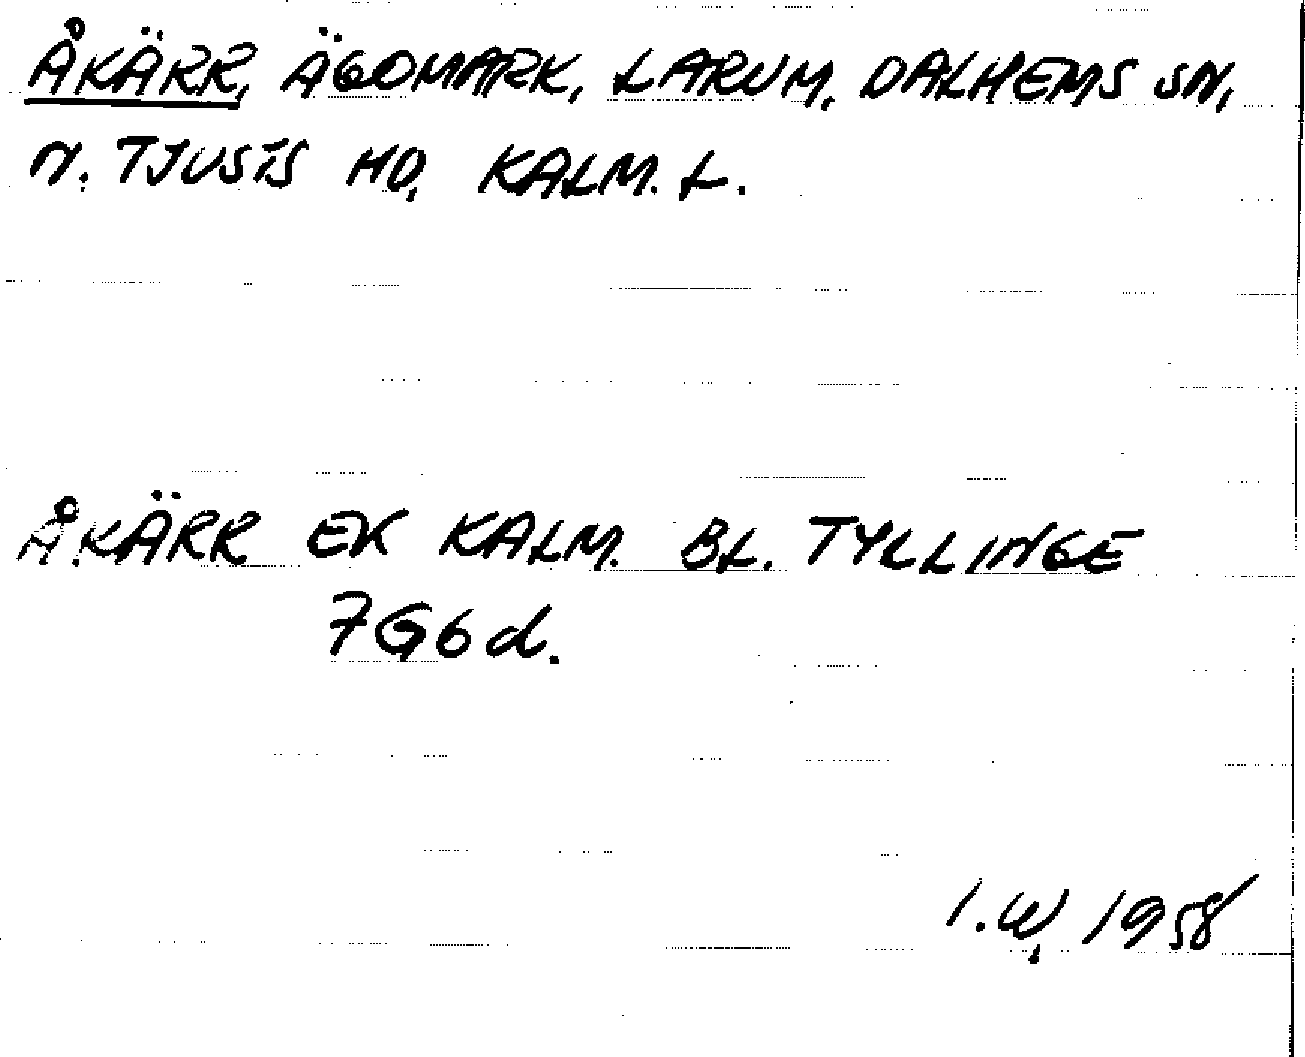 ÅKÄRR, ÄGOMARK, LARUM, DALHEMS SN,
N. TJUSTS HD, KALM. L.
ÅKÄRR EK KALM. BL. TYLLINGE
7G6d.
I.W, 1958